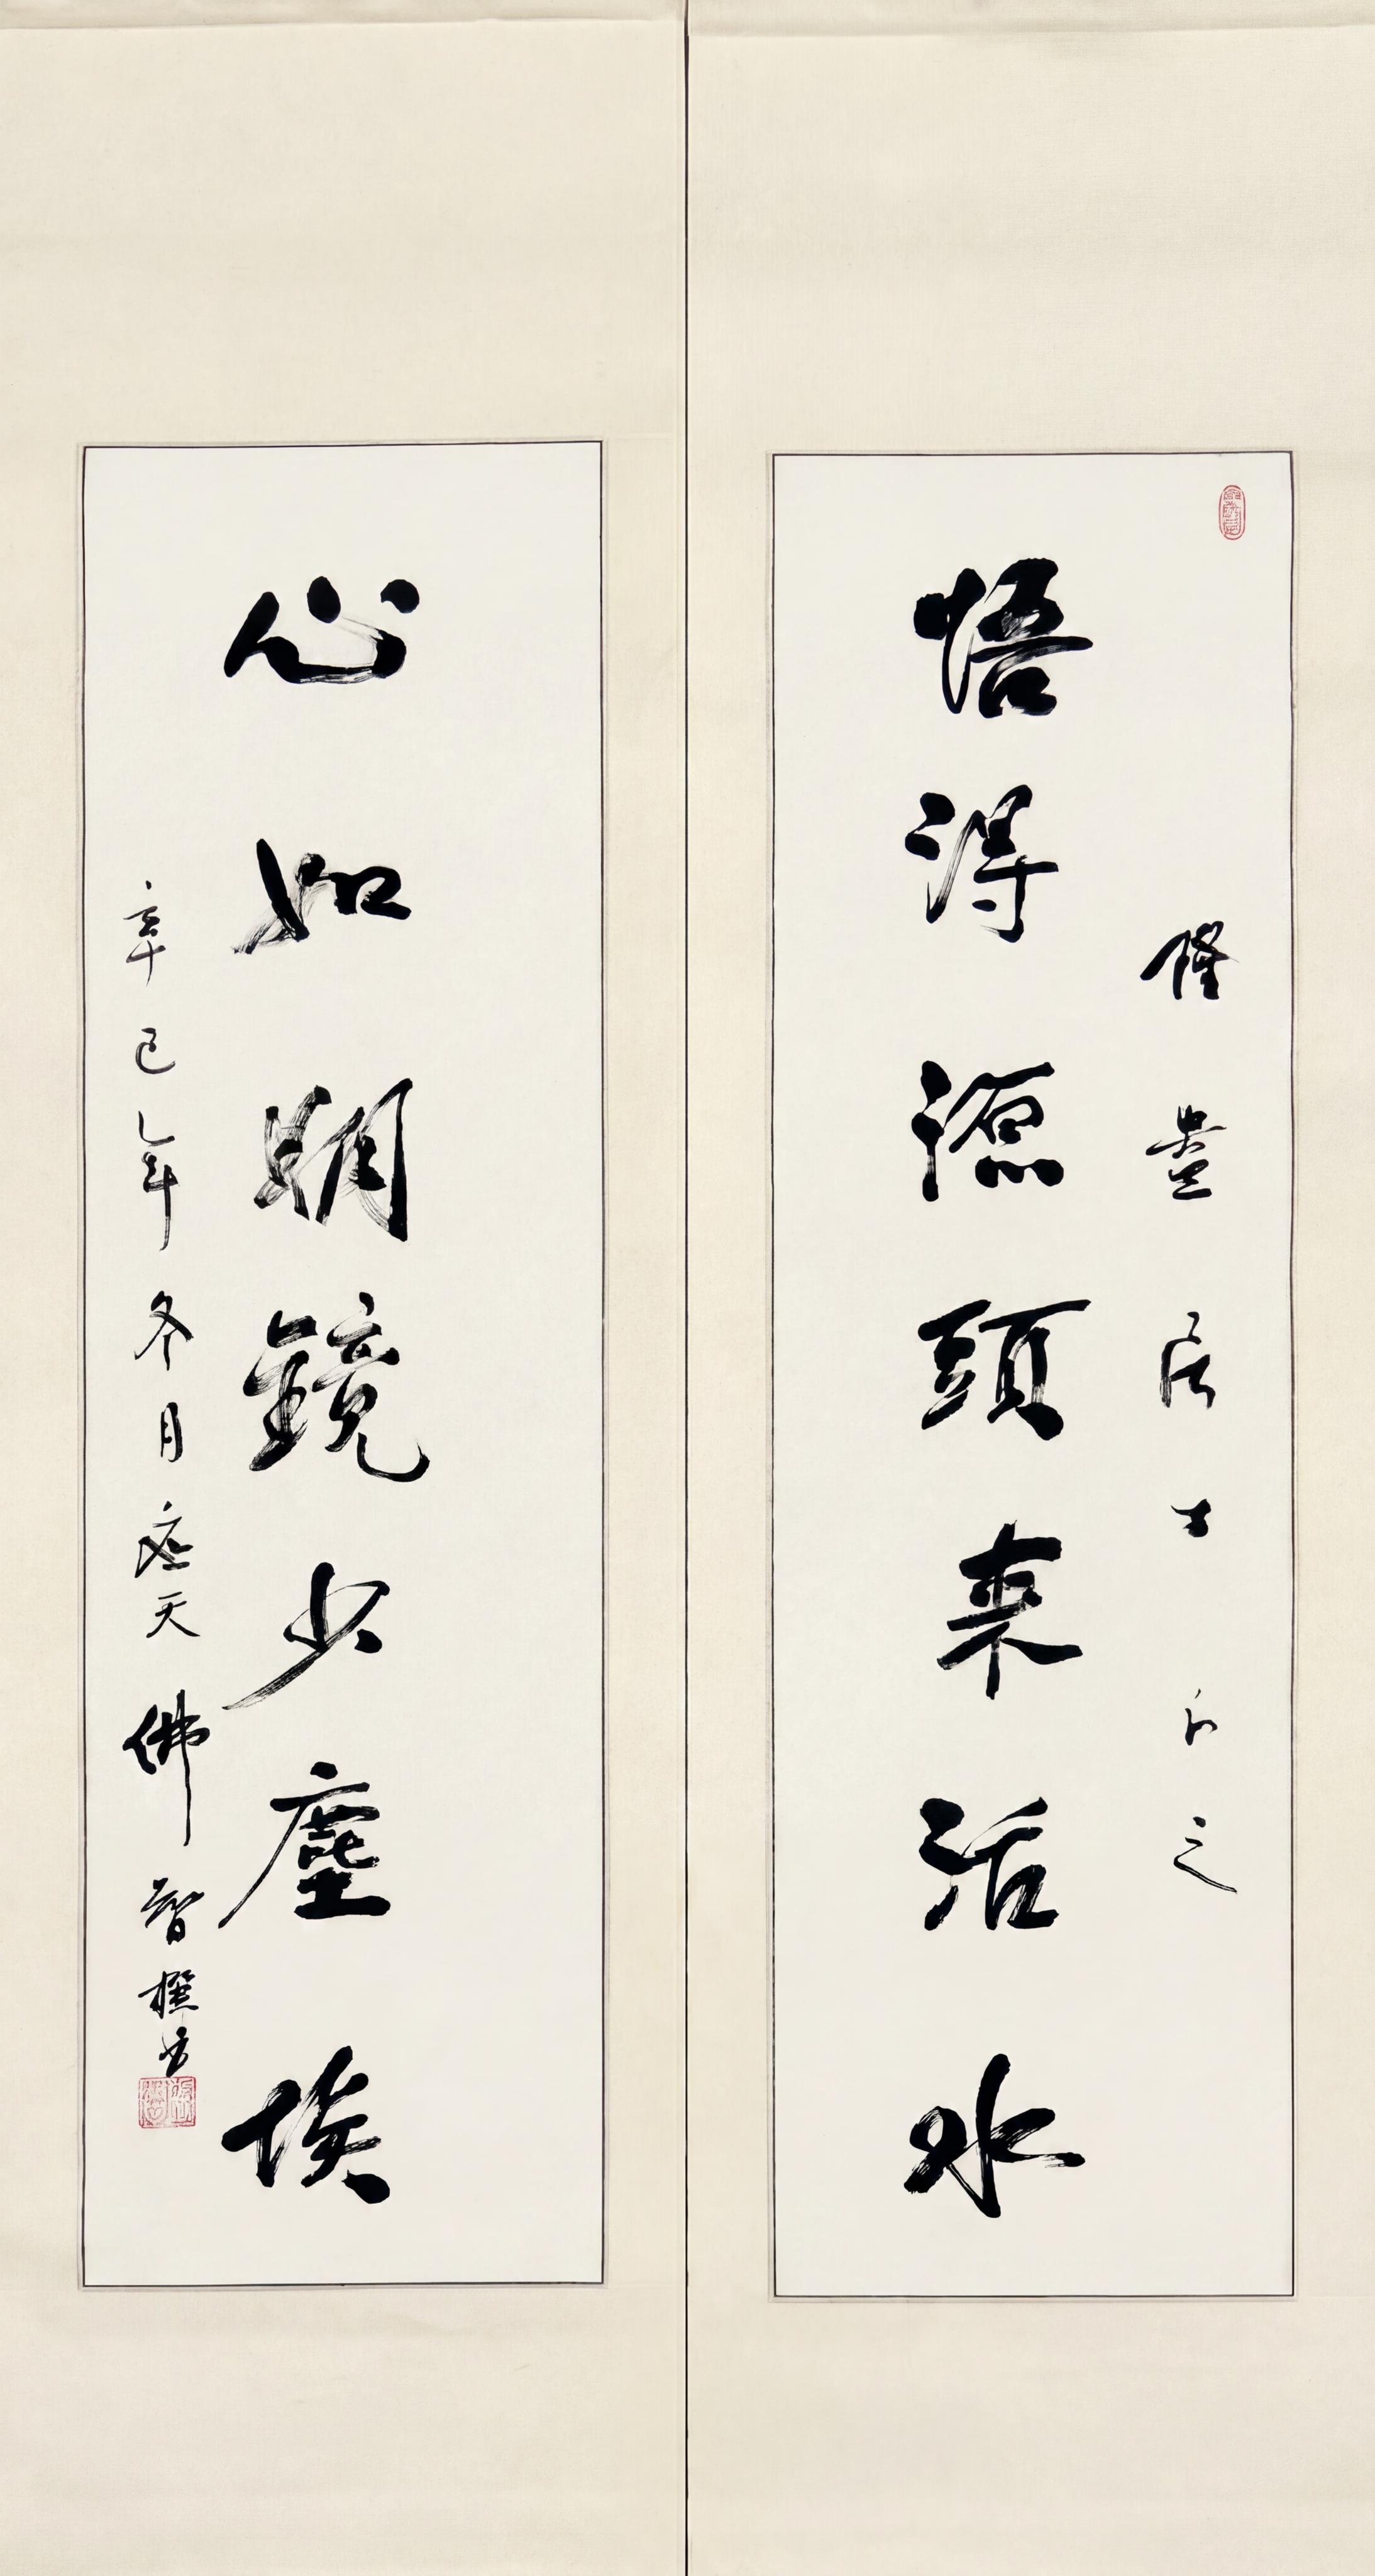 悟得源頭来活水
居士正之
心如明鏡少塵埃
辛巳年冬月應天佛智撰書